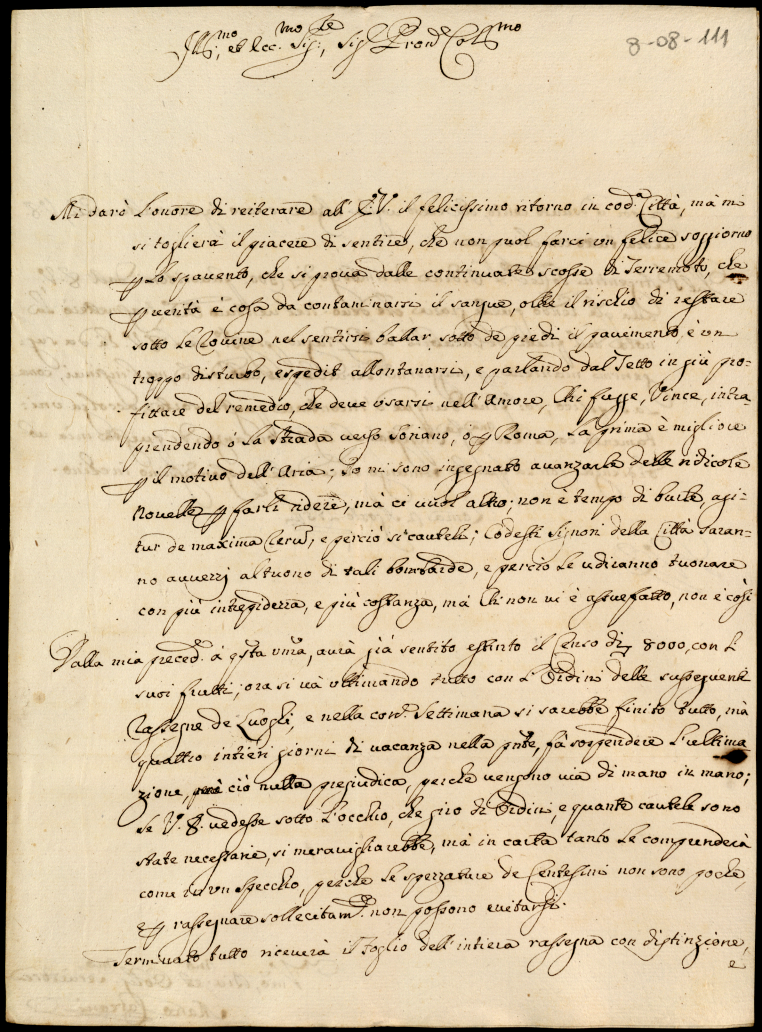 8-08-111
Ill.mo, et Ecc. Sig.,mo Sig.re Pron.e Col.mo
Mi darò l'onore di reiterare all' E.V. il felicissimo ritorno in cod.a Città, mà mi
si toglierà il piacere di sentire, che non puol farci un felice soggiorno
p Lo spavento, che si prova dalle continuate scosse di Terremoto, che
p verità è cosa da contaminarsi il sangue, oltre il rischio di restare
sotto le rovine nel sentirsi ballar sotto de piedi il pavimento è un
troppo disturbo, espedit allontanarsi, e parlando dal Tetto in giù pro=
fittare del remedio, che deve usarsi nell'Amore, Chi fugge, Vince, intra=
prendendo ò la strada verso Soriano, ò p Roma, la prima è migliore
p il motivo dell'Aria; Io mi sono ingegnato avanzarle delle ridicole
Novelle p farle ridere, mà ci vuol altro; non è tempo di burle, agi=
tur de maxima e perciò si cauteli; Codesti Signori della Città saran=
no avvezzi al tuono di tali bombarde, e perciò le udiranno tuonare
con più intrepidezza, e più costanza, mà Chi non vi è assuefatto, non è così
Dalla mia preced.e à q.sta avrà già sentito estinto il Censo di 8000, con l
suoi frutti; ora si và ultimando tutto con l'Ordini delle susseguenti
rassegne de Luoghi, e nella cor.e Settimana si sarebbe finito tutto, mà
quattro intieri giorni di vacanza nella p.nte, fà sospendere l'ultima
zione, ciò nulla pregiudica, perche vengono via di mano in mano;
se V.E. vedesse sotto l'occhio, che giro di Ordini, e quante cautele sono
state necessarie, si meravigliarebbe, mà in carta tanto le comprenderà
come in un specchio, perche le spezzature de Centesimi non sono poche,
e p rassegnare sollecitam.e non possono evitarsi.
Terminato tutto riceverà il Foglio dell'intiera rassegna con distinzione,
e